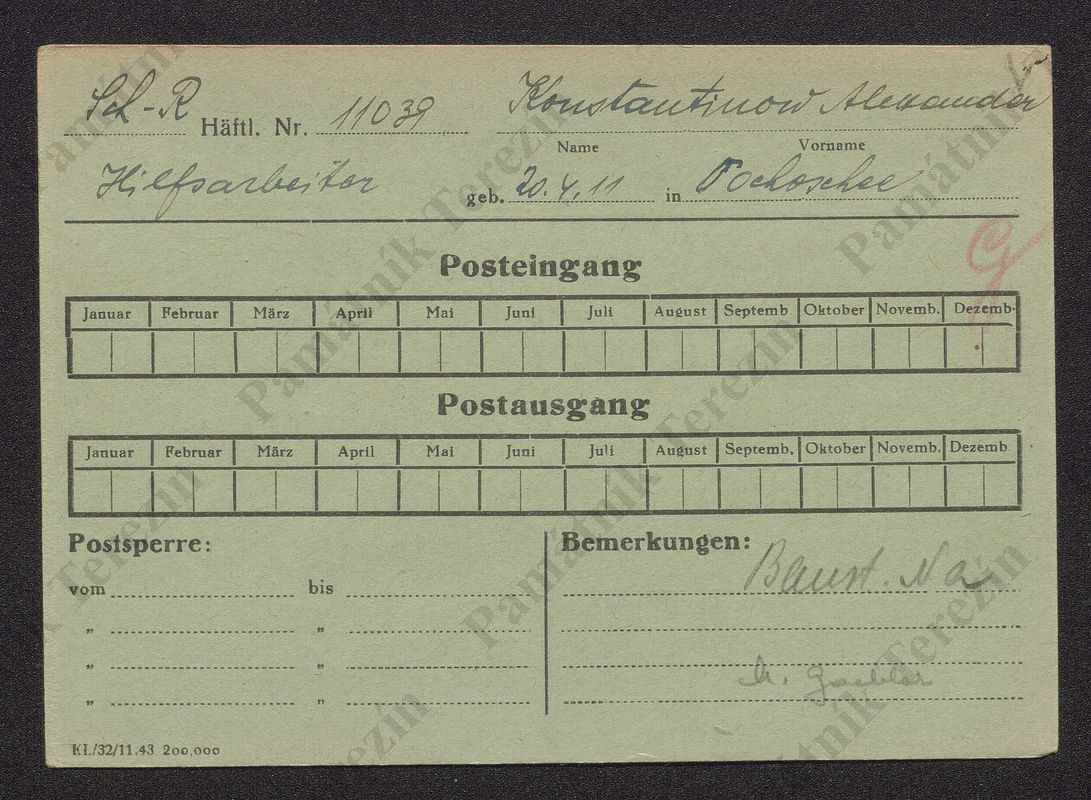 Sch-R Häftl. Nr. 11039 Konstantinow Alexander
Name Vorname
Hilfsarbeiter geb. 20.4.11 in
Posteingang
Januar Februar März April Mai Juni Juli August Septemb Oktober Novemb. Dezemb.
Postausgang
Januar Februar März April Mai Juni Juli August Septemb. Oktober Novemb. Dezemb
Postsperre: Bemerkungen:
vom bis Baust.
" "
" "
" "
KL/32/11.43 200,000
Památník Terezín